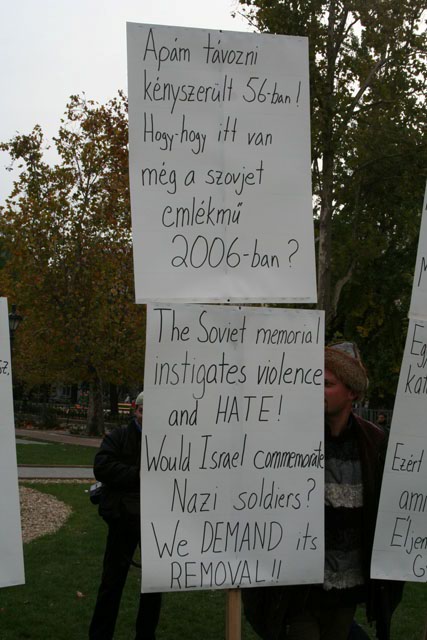 Apám távozni
kényszerült 56-ban!
Hogy-hogy itt van
még a szovjet
emlékmű
2006-ban?
The Soviet memorial
instigates violence
and HATE!
Would Israel commemorate
Nazi soldiers?
We DEMAND its
REMOVAL!!
Ezért
ami